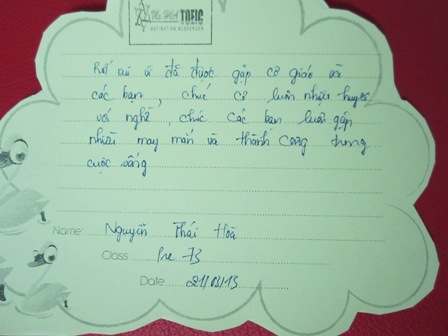 Ms. Hoa TOEIC
Rất vui vì đã được gặp cô giáo và
các bạn, chúc cô luôn nhiệt huyết
với nghề, chúc các bạn luôn gặp
nhiều may mắn và thành công trong
cuộc sống
Name: Nguyễn Thái Hoà
Class Pre
Date 21/03/13